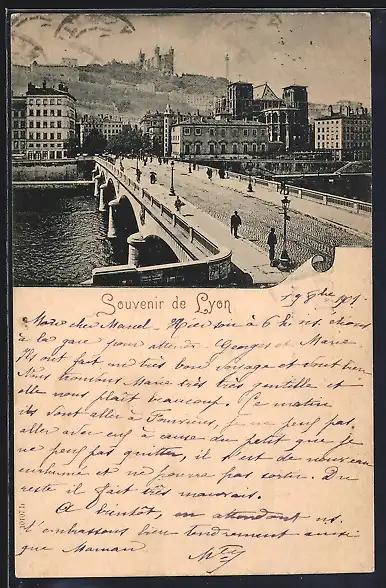 Souvenir de Lyon
19 9bre 1901.
Mon cher Marcel. Hier soir à 6 h ns étions
à la gare pour attendre Georges et Marie
Ils ont fait un très bon voyage et vont bien
Nous trouvons Marie très très gentille et
elle nous plait beaucoup. Ce matin
ils sont aller à Fourvière, je ne peux pas
aller avec eux à cause du petit que je
ne peux pas quitter, il s'est de nouveau
enrhumé et ne pourra pas sortir. Du
reste il fait très mauvais.
A bientôt, en attendant ns
t'embrassons bien tendrement ainsi
que Maman